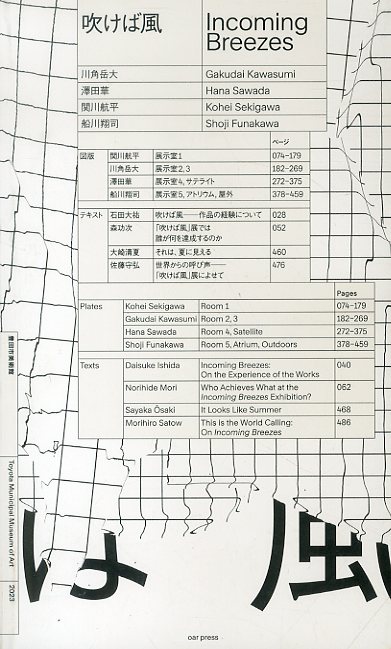 吹けば風 Incoming
Breezes
川角岳大 Gakudai Kawasumi
澤田華 Hana Sawada
関川航平 Kohei Sekigawa
船川翔司 Shoji Funakawa
ページ
図版 関川航平 展示室1 074–179
川角岳大 展示室2, 3 182–269
澤田華 展示室4, サテライト 272–375
船川翔司 展示室5, アトリウム, 屋外 378–459
テキスト 石田大祐 吹けば風——作品の経験について 028
森功次 「吹けば風」展では 052
誰が何を達成するのか
大崎清夏 それは、夏に見える 460
佐藤守弘 世界からの呼び声—— 476
「吹けば風」展によせて
Pages
Plates Kohei Sekigawa Room 1 074–179
Gakudai Kawasumi Room 2, 3 182–269
Hana Sawada Room 4, Satellite 272–375
Shoji Funakawa Room 5, Atrium, Outdoors 378–459
Texts Daisuke Ishida Incoming Breezes: 040
On the Experience of the Works
Norihide Mori Who Achieves What at the 062
Incoming Breezes Exhibition?
Sayaka Ōsaki It Looks Like Summer 468
Morihiro Satow This Is the World Calling: 486
On Incoming Breezes
豊田市美術館
Toyota Municipal Museum of Art
2023
ば 風
oar press